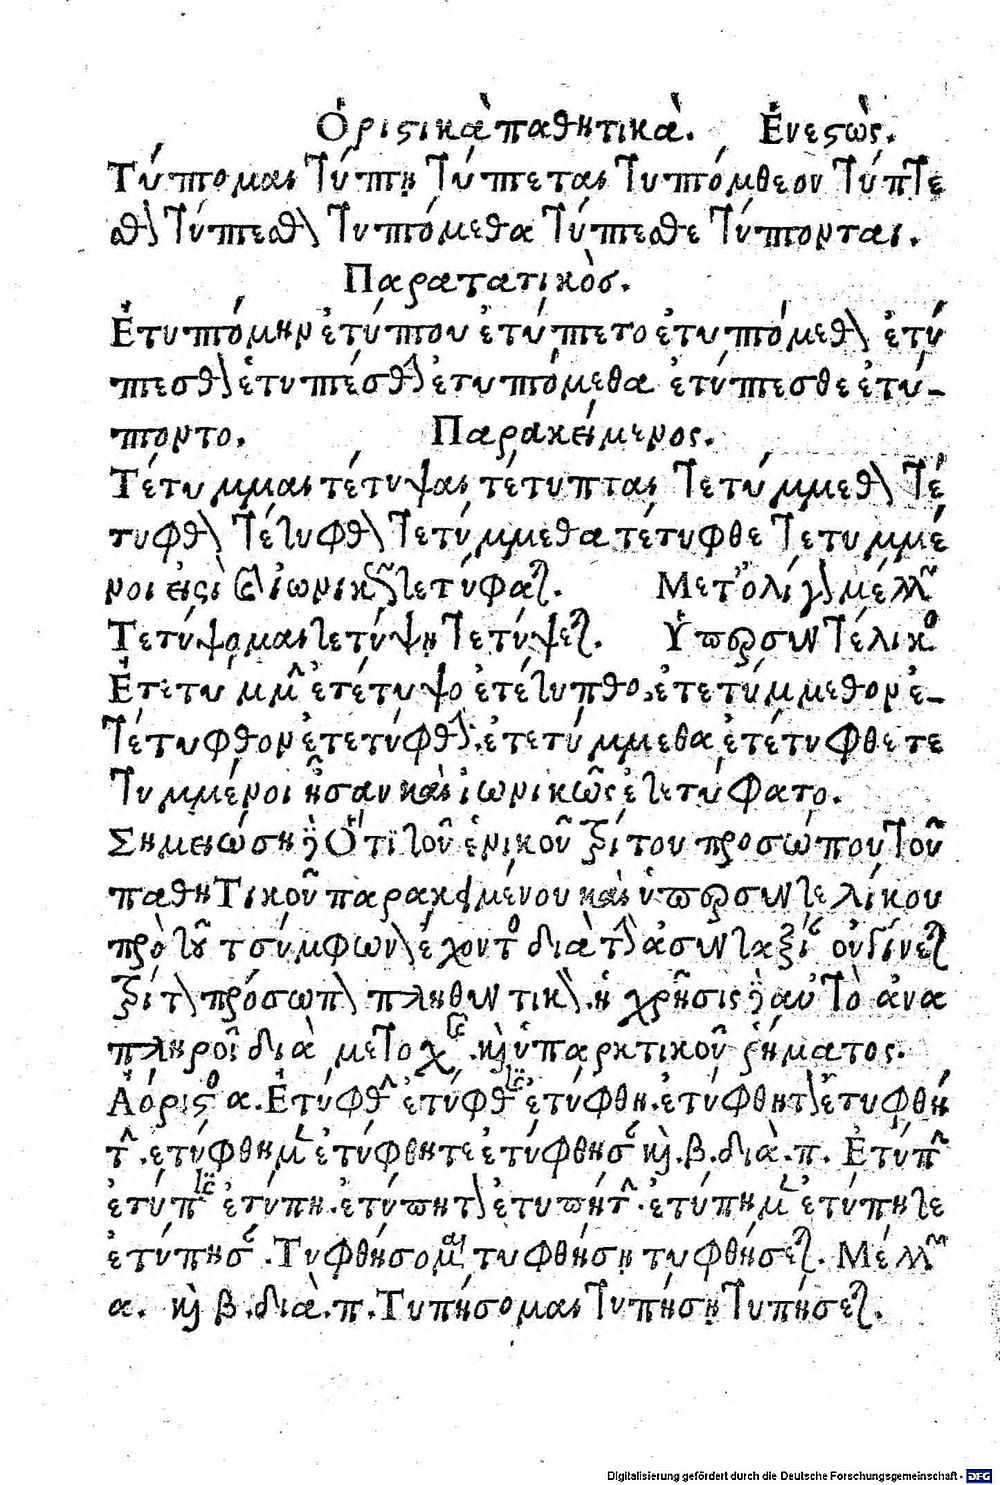 Ὁριστικὰ παθητικὰ. Ἐνεστώς.
Τύπτομαι τύπτῃ τύπτεται τυπτόμεθον τύπτε
σθον τύπτεσθον τυπτόμεθα τύπτεσθε τύπτονται.
Παρατατικὸς.
Ἐτυπτόμην ἐτύπτου ἐτύπτετο ἐτυπτόμεθον ἐτύ
πτεσθον ἐτυπτέσθην ἐτυπτόμεθα ἐτύπτεσθε ἐτύ-
πτοντο. Παρακείμενος.
Τέτυμμαι τέτυψαι τέτυπται τετύμμεθον τέ
τυφθον τέτυφθον τετύμμεθα τέτυφθε τετυμμέ
νοι εἰσὶ καὶ ἰωνικῶς τετύφαται. Μετ' ὀλίγον μέλλων
Τετύψομαι τετύψῃ τετύψεται. Ὑπερσυντέλικος
Ἐτετύμμην ἐτέτυψο ἐτέτυπτο. ἐτετύμμεθον ἐ-
τέτυφθον ἐτετύφθην. ἐτετύμμεθα ἐτέτυφθε τε
τυμμένοι ἦσαν καὶ ἰωνικῶς ἐτετύφατο.
Σημείωσαι Ὅτι τοῦ ἑνικοῦ τρίτου προσώπου τοῦ
παθητικοῦ παρακειμένου καὶ ὑπερσυντελίκου
πρὸ τοῦ τ σύμφωνον ἔχοντος διὰ τὸ ἀσύντακτον οὐ γίνεται
τρίτον πρόσωπον πληθυντικόν. ἡ χρῆσις δὲ αὐτὸ ἀνα
πληροῖ διὰ μετοχῆς. καὶ ὑπαρκτικοῦ ῥήματος.
Ἀόριστος α. Ἐτύφθην ἐτύφθης ἐτύφθη. ἐτύφθητον ἐτυφθή
την. ἐτύφθημεν ἐτύφθητε ἐτύφθησαν καὶ. β. διὰ. π. Ἐτύπην
ἐτύπης ἐτύπη. ἐτύπητον ἐτυπήτην. ἐτύπημεν ἐτύπητε
ἐτύπησαν. Τυφθήσομαι τυφθήσῃ τυφθήσεται. Μέλλων
α. καὶ β. διὰ. π. Τυπήσομαι τυπήσῃ τυπήσεται.
Digitalisierung gefördert durch die Deutsche Forschungsgemeinschaft - DFG